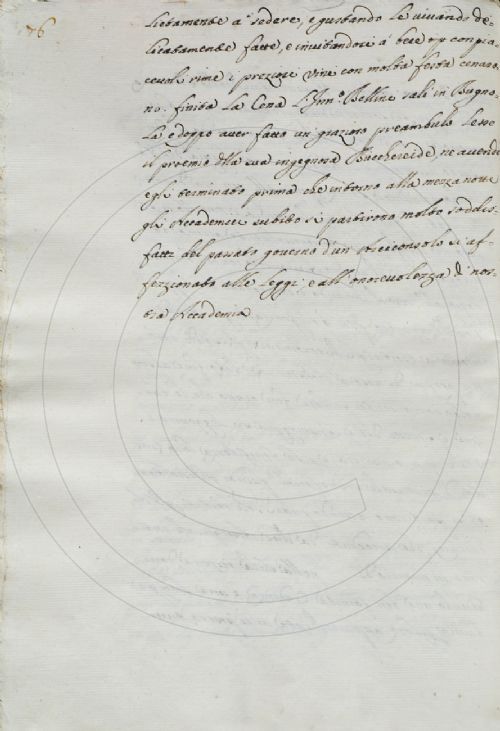 76
lietamente a' sedere, e gustando le vivande de-
licatamente fatte, e invitandosi a' bere con pia-
cevoli rime i preziosi vini con molta festa cenaro-
no. finita la Cena l'Inn.º Bellini salì in Bugno-
la, e doppo aver fatto un grazioso preambulo lesse
il proemio della sua ingegnosa Bucchereide, ne avendo
egli terminato prima che intorno alla mezza notte
gli Accademici subito si partirono molto soddis-
fatti del passato governo d'un Arciconsolo sì af-
fezzionato alle Leggi, e all'onorevolezza di nos-
tra Accademia